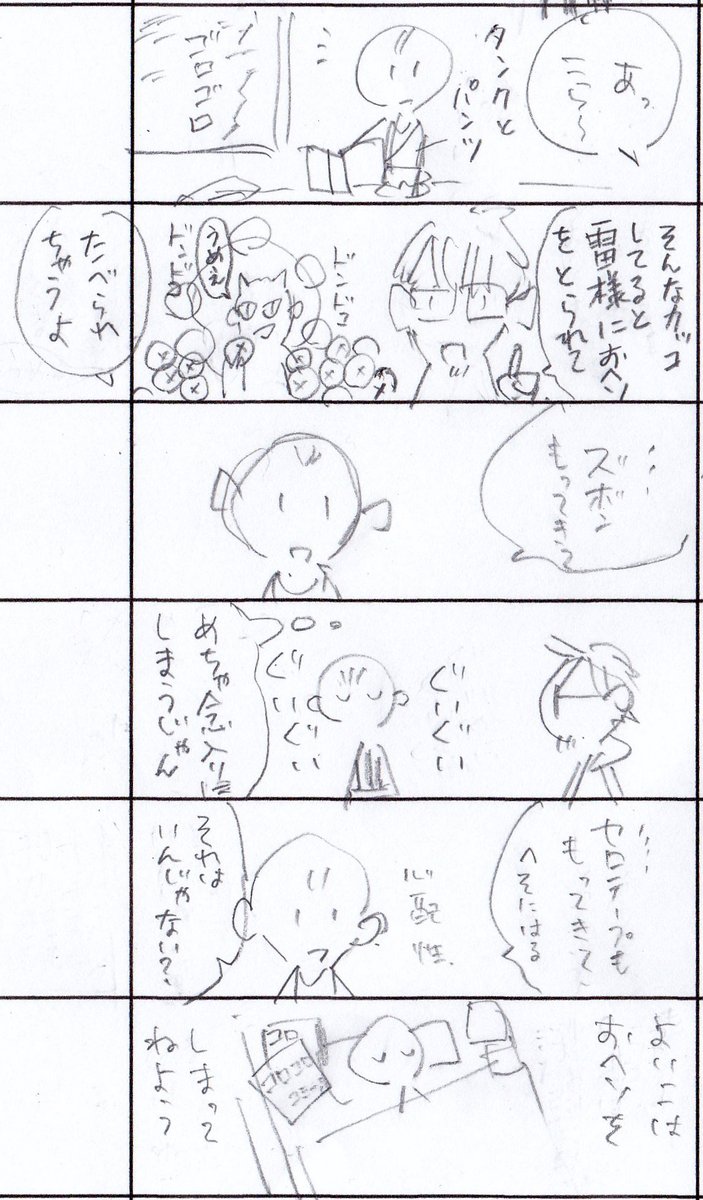 あっ
こら〜
タンクと
パンツ
ゴロゴロ
そんなカッコ
してると
雷様におヘソ
をとられて
ドンドコ
うめえ
ドンドコ
たべられ
ちゃうよ
ズボン
もってきて
ぐいぐい
ぐいぐい
めちゃ念入りに
しまうじゃん
セロテープも
もってきて
へそにはる
心配性
それは
いんじゃない?
よいこは
おヘソを
コロ
コロコロ
しまって
ねよう